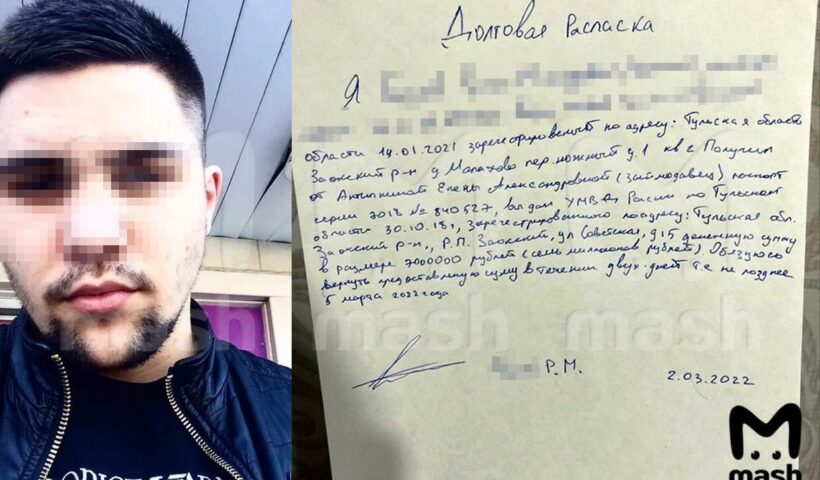 Долговая Расписка
Я
области 14.01.2021 зарегестрированный по адресу: Тульская область
Заокский р-н д. Малахово пер. южный д.1 кв 2 Получил
от Антипкиной Елены Александровной (займодавец) паспорт
серии 7018 № 840527, выдан УМВД России по Тульской
области 30.10.18г, зарегестрированного по адресу: Тульская обл.
Заокский р-н., Р.П. Заокский, ул Советская, д15 денежную сумму
в размере 7000000 рублей (семь миллионов рублей) Обязуюсь
вернуть предоставленную сумму в течении двух дней т.е. не позднее
5 марта 2022 года
Р.М.
2.03.2022
mash
mash
mash
mash